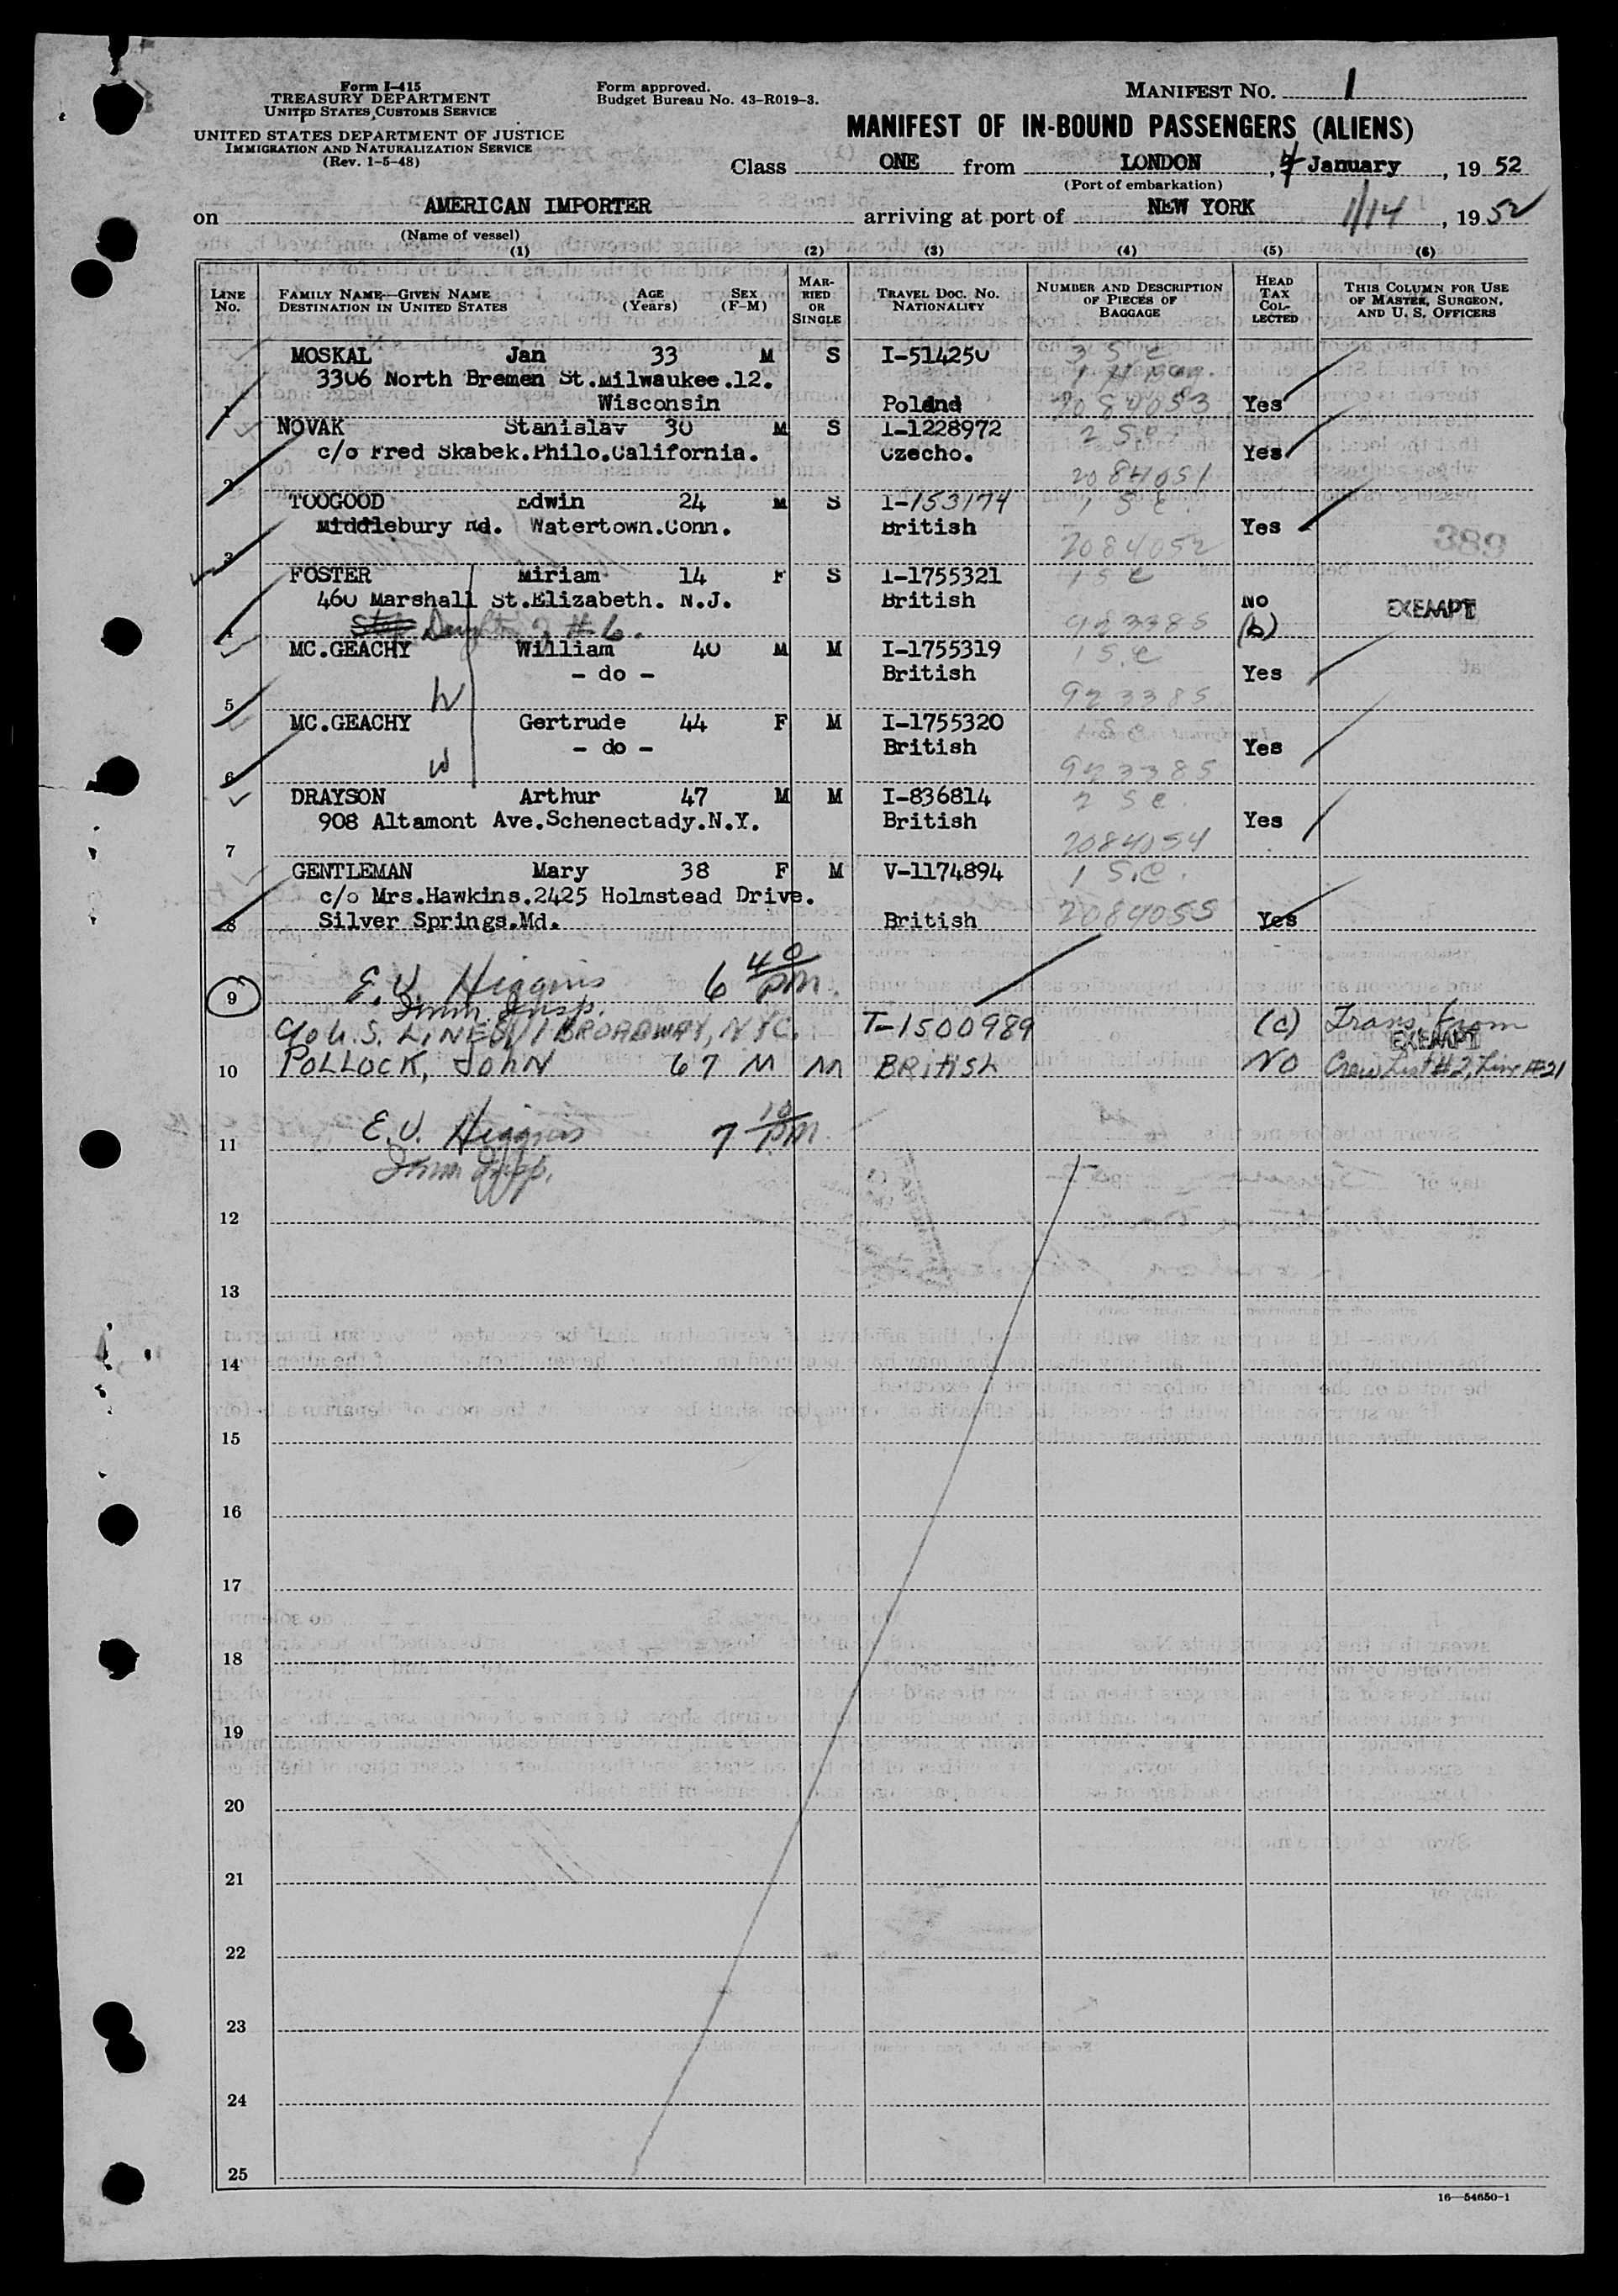 Form I-415
TREASURY DEPARTMENT
UNITED STATES CUSTOMS SERVICE
UNITED STATES DEPARTMENT OF JUSTICE
IMMIGRATION AND NATURALIZATION SERVICE
(Rev. 1-5-48)
Form approved.
Budget Bureau No. 43-R019-3.
MANIFEST NO. 1
MANIFEST OF IN-BOUND PASSENGERS (ALIENS)
Class ONE from LONDON, 4 January, 19 52
(Port of embarkation)
on AMERICAN IMPORTER arriving at port of NEW YORK 1/14, 19 52
(Name of vessel)
(1) (2) (3) (4) (5) (6)
LINE No. FAMILY NAME—GIVEN NAME DESTINATION IN UNITED STATES AGE (Years) SEX (F-M) MARRIED OR SINGLE TRAVEL DOC. NO. NATIONALITY NUMBER AND DESCRIPTION OF PIECES OF BAGGAGE HEAD TAX COLLECTED THIS COLUMN FOR USE OF MASTER, SURGEON, AND U. S. OFFICERS
MOSKAL Jan 33 M S I-514250 3 S C
3306 North Bremen St.Milwaukee.12. 1 H Bag.
1 Wisconsin Poland 2084053 Yes
NOVAK Stanislav 30 M S I-1228972 2 S.C.
c/o Fred Skabek.Philo.California. Czecho. Yes
2 2084051
TOOGOOD Edwin 24 M S I-153174 1 S C.
Middlebury Rd. Watertown.Conn. British Yes
3 2084052
389
FOSTER Miriam 14 F S I-1755321 1 S C
460 Marshall St.Elizabeth. N.J. British NO EXEMPT
4 Step Daughter of #6. 923385 (b)
MC.GEACHY William 40 M M I-1755319 1 S.C
- do - British Yes
5 H 923385
MC.GEACHY Gertrude 44 F M I-1755320
- do - British Yes
6 W 923385
DRAYSON Arthur 47 M M I-836814 2 S C.
908 Altamont Ave.Schenectady.N.Y. British Yes
7 2084054
GENTLEMAN Mary 38 F M V-1174894 1 S.C.
c/o Mrs.Hawkins.2425 Holmstead Drive.
8 Silver Springs.Md. British 2084055 Yes
9 E.V. Higgins 6 40 PM.
Imm. Insp.
c/o U.S. LINES, 1 BROADWAY, NYC. T-1500989 (c) Trans. from
EXEMPT
10 POLLOCK, JOHN 67 M M BRITISH NO Crew List #2, Line #21
11 E.V. Higgins 7 10 PM.
Imm Insp.
12
13
14
15
16
17
18
19
20
21
22
23
24
25
16—54650-1